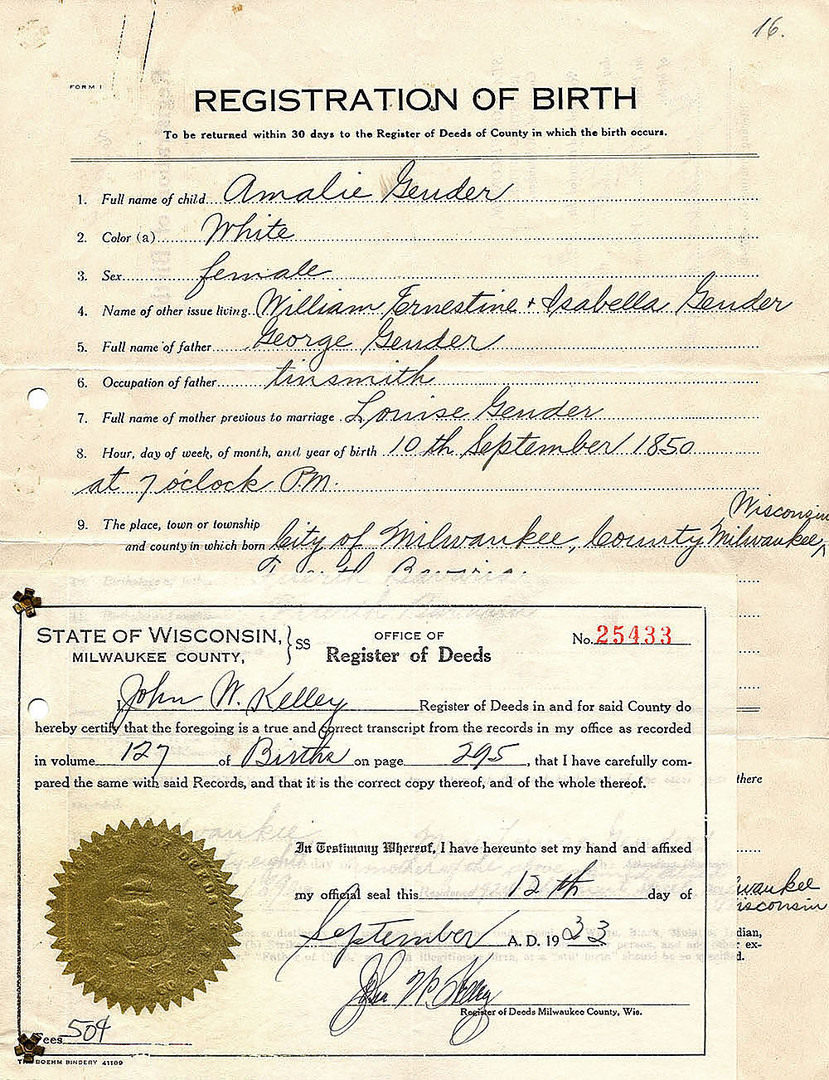 16.
FORM 1
REGISTRATION OF BIRTH
To be returned within 30 days to the Register of Deeds of County in which the birth occurs.
1. Full name of child Amalie Gender
2. Color (a) White
3. Sex female
4. Name of other issue living William Ernestine + Isabella Gender
5. Full name of father George Gender
6. Occupation of father tinsmith
7. Full name of mother previous to marriage Louise Gender
8. Hour, day of week, of month, and year of birth 10th September 1850
at 7 o'clock P.M.
9. The place, town or township
and county in which born City of Milwaukee, County Milwaukee, Wisconsin
Bavaria.
STATE OF WISCONSIN, } SS
MILWAUKEE COUNTY,
OFFICE OF
Register of Deeds
No. 25433
I, John W. Kelley Register of Deeds in and for said County do
hereby certify that the foregoing is a true and correct transcript from the records in my office as recorded
in volume 127 of Births on page 295, that I have carefully com-
pared the same with said Records, and that it is the correct copy thereof, and of the whole thereof.
there
In Testimony Whereof, I have hereunto set my hand and affixed
my official seal this 12th day of
September A. D. 1933
John W. Kelley
Register of Deeds Milwaukee County, Wis.
waukee
isconsin
dian,
ex-
d.
Fees 50¢
THE BOEHM BINDERY 41109